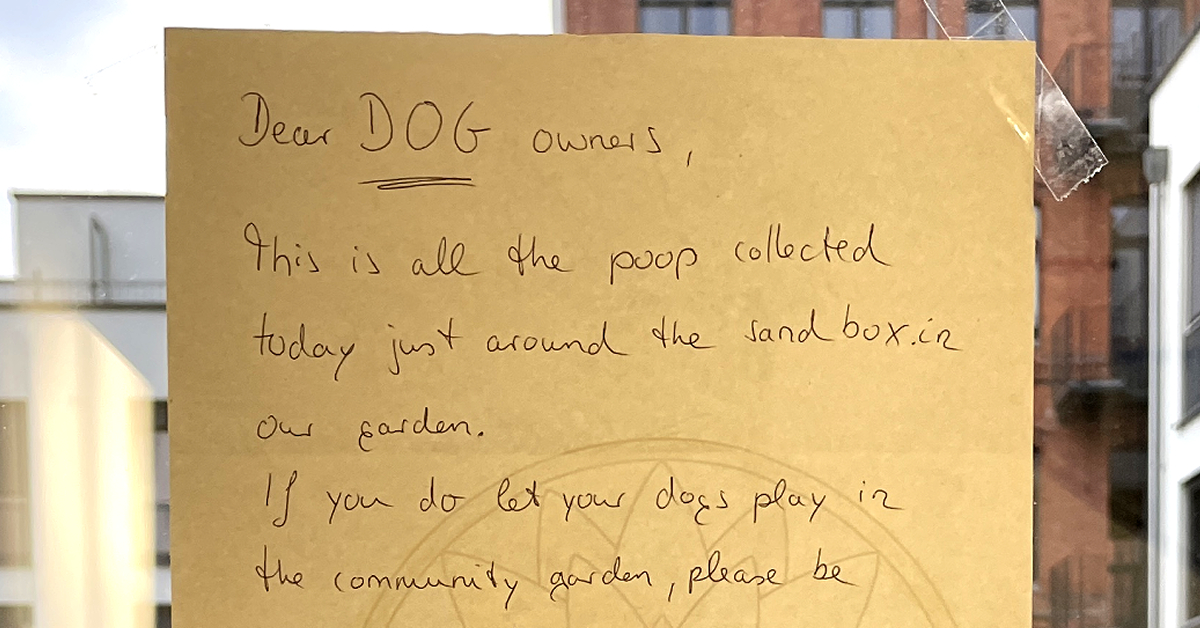 Dear DOG owners,
This is all the poop collected
today just around the sandbox.in
our garden.
If you do let your dogs play in
the community garden, please be